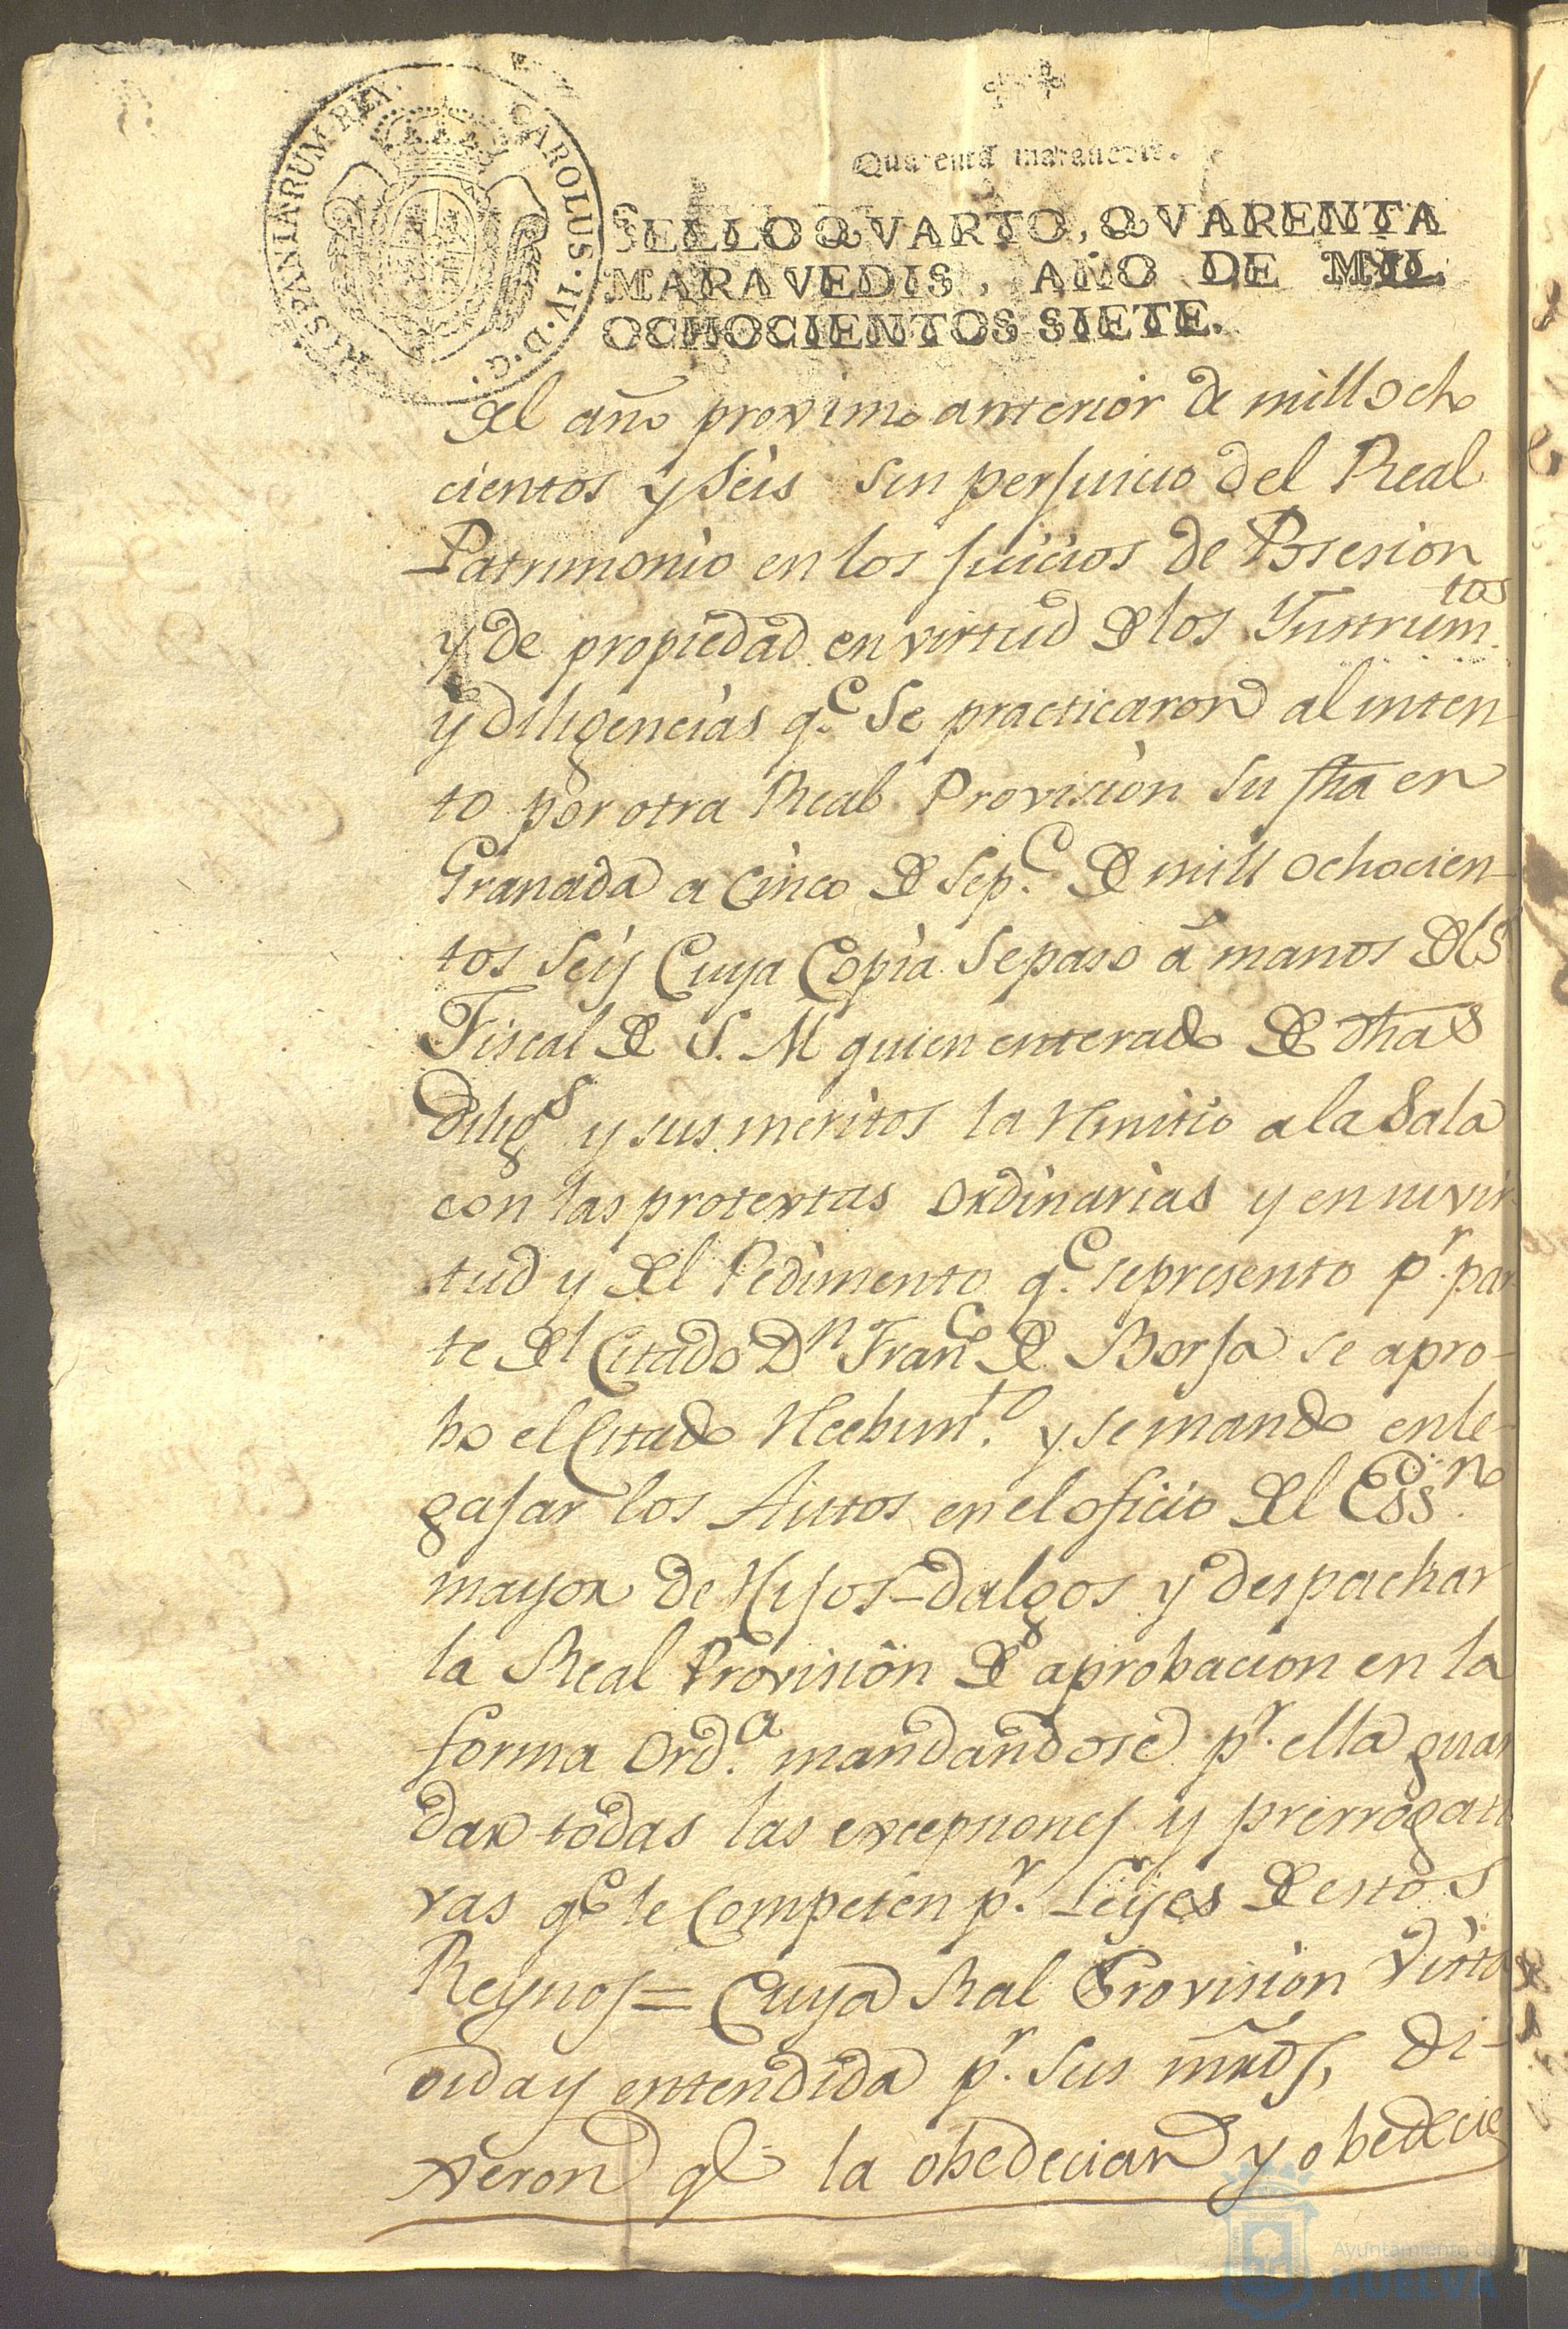 HISPANIARUM REX. CAROLUS·IV·D·G·
Quarenta maravedis.
SELLO QVARTO, QVARENTA
MARAVEDIS, AÑO DE MIL
OCHOCIENTOS SIETE.
del año proximo anterior de mill ocho
cientos y Seis Sin perjuicio del Real
Patrimonio en los juicios de Posesion
y de propiedad en virtud de los Ynstrum.tos
y diligencias q.e Se practicaron al inten
to por otra Real Provision Su fha en
Granada a Cinco de Sep.e de mill ochocien-
tos Seis Cuya Copia Se paso â manos del S
Fiscal de S. M quien enterado de dhas
Dilig.s y sus meritos la Rmitio a la Sala
con las protextas Ordinarias y en su vir
tud y del Pedimento q.e se presento p.r par
te del Citado D.n Fran.co de Borja se apro-
bo el Citado Recbim.to y se mando enle-
gajar los Autos en el oficio del Ess.no
mayor de Hijos-dalgos y despachar
la Real Provision de aprobacion en la
forma Ord.a mandandose p.r ella guar
dar todas las excepciones y prerrogati
vas q.e le Competen p.r Leyes de estos
Reynos= Cuya Ral Provision Vista
oida y entendida p.r Sus mrds, di-
xeron q.e la obedecian y obedecie
Ayuntamiento de
HUELVA